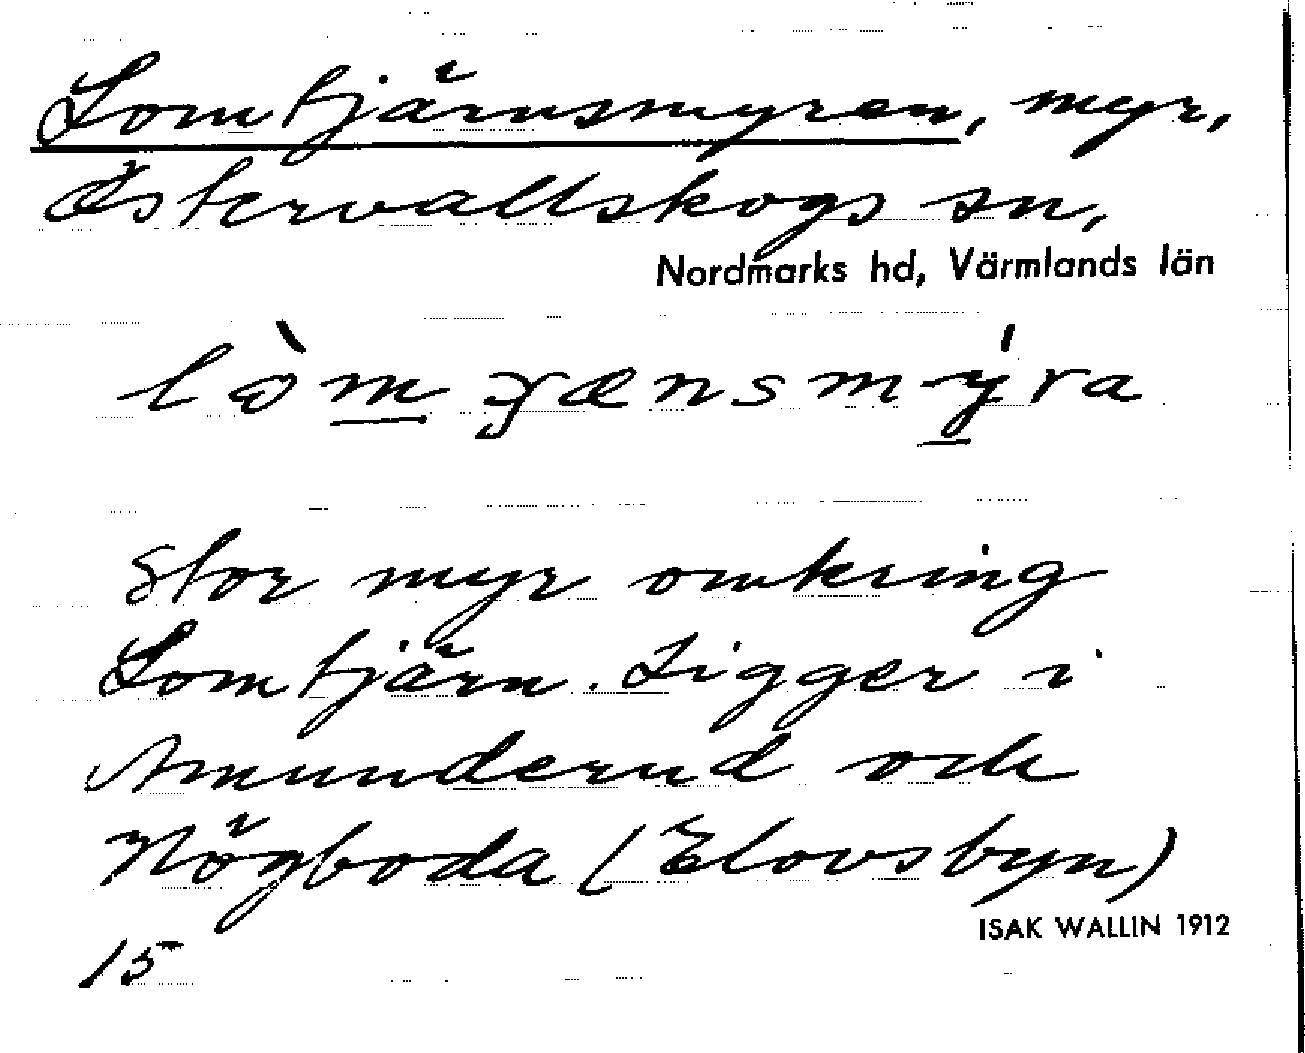 Lomtjärnsmyren, myr,
Östervallskogs sn,
Nordmarks hd, Värmlands län
Stor myr omkring
Lomtjärn. Ligger i
Amunderud och
Högboda (Elovsbyn)
ISAK WALLIN 1912
15